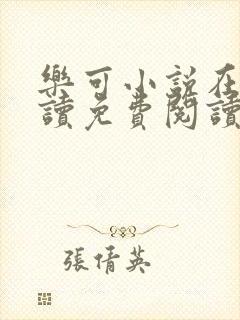 樂可小說在
讀免費閱讀
張倩英